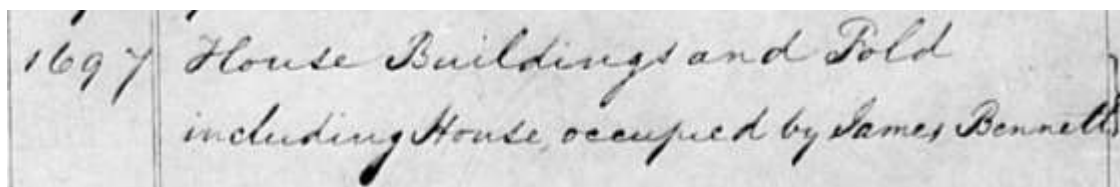 1697 House Buildings and Fold
including House, occupied by James Bennett